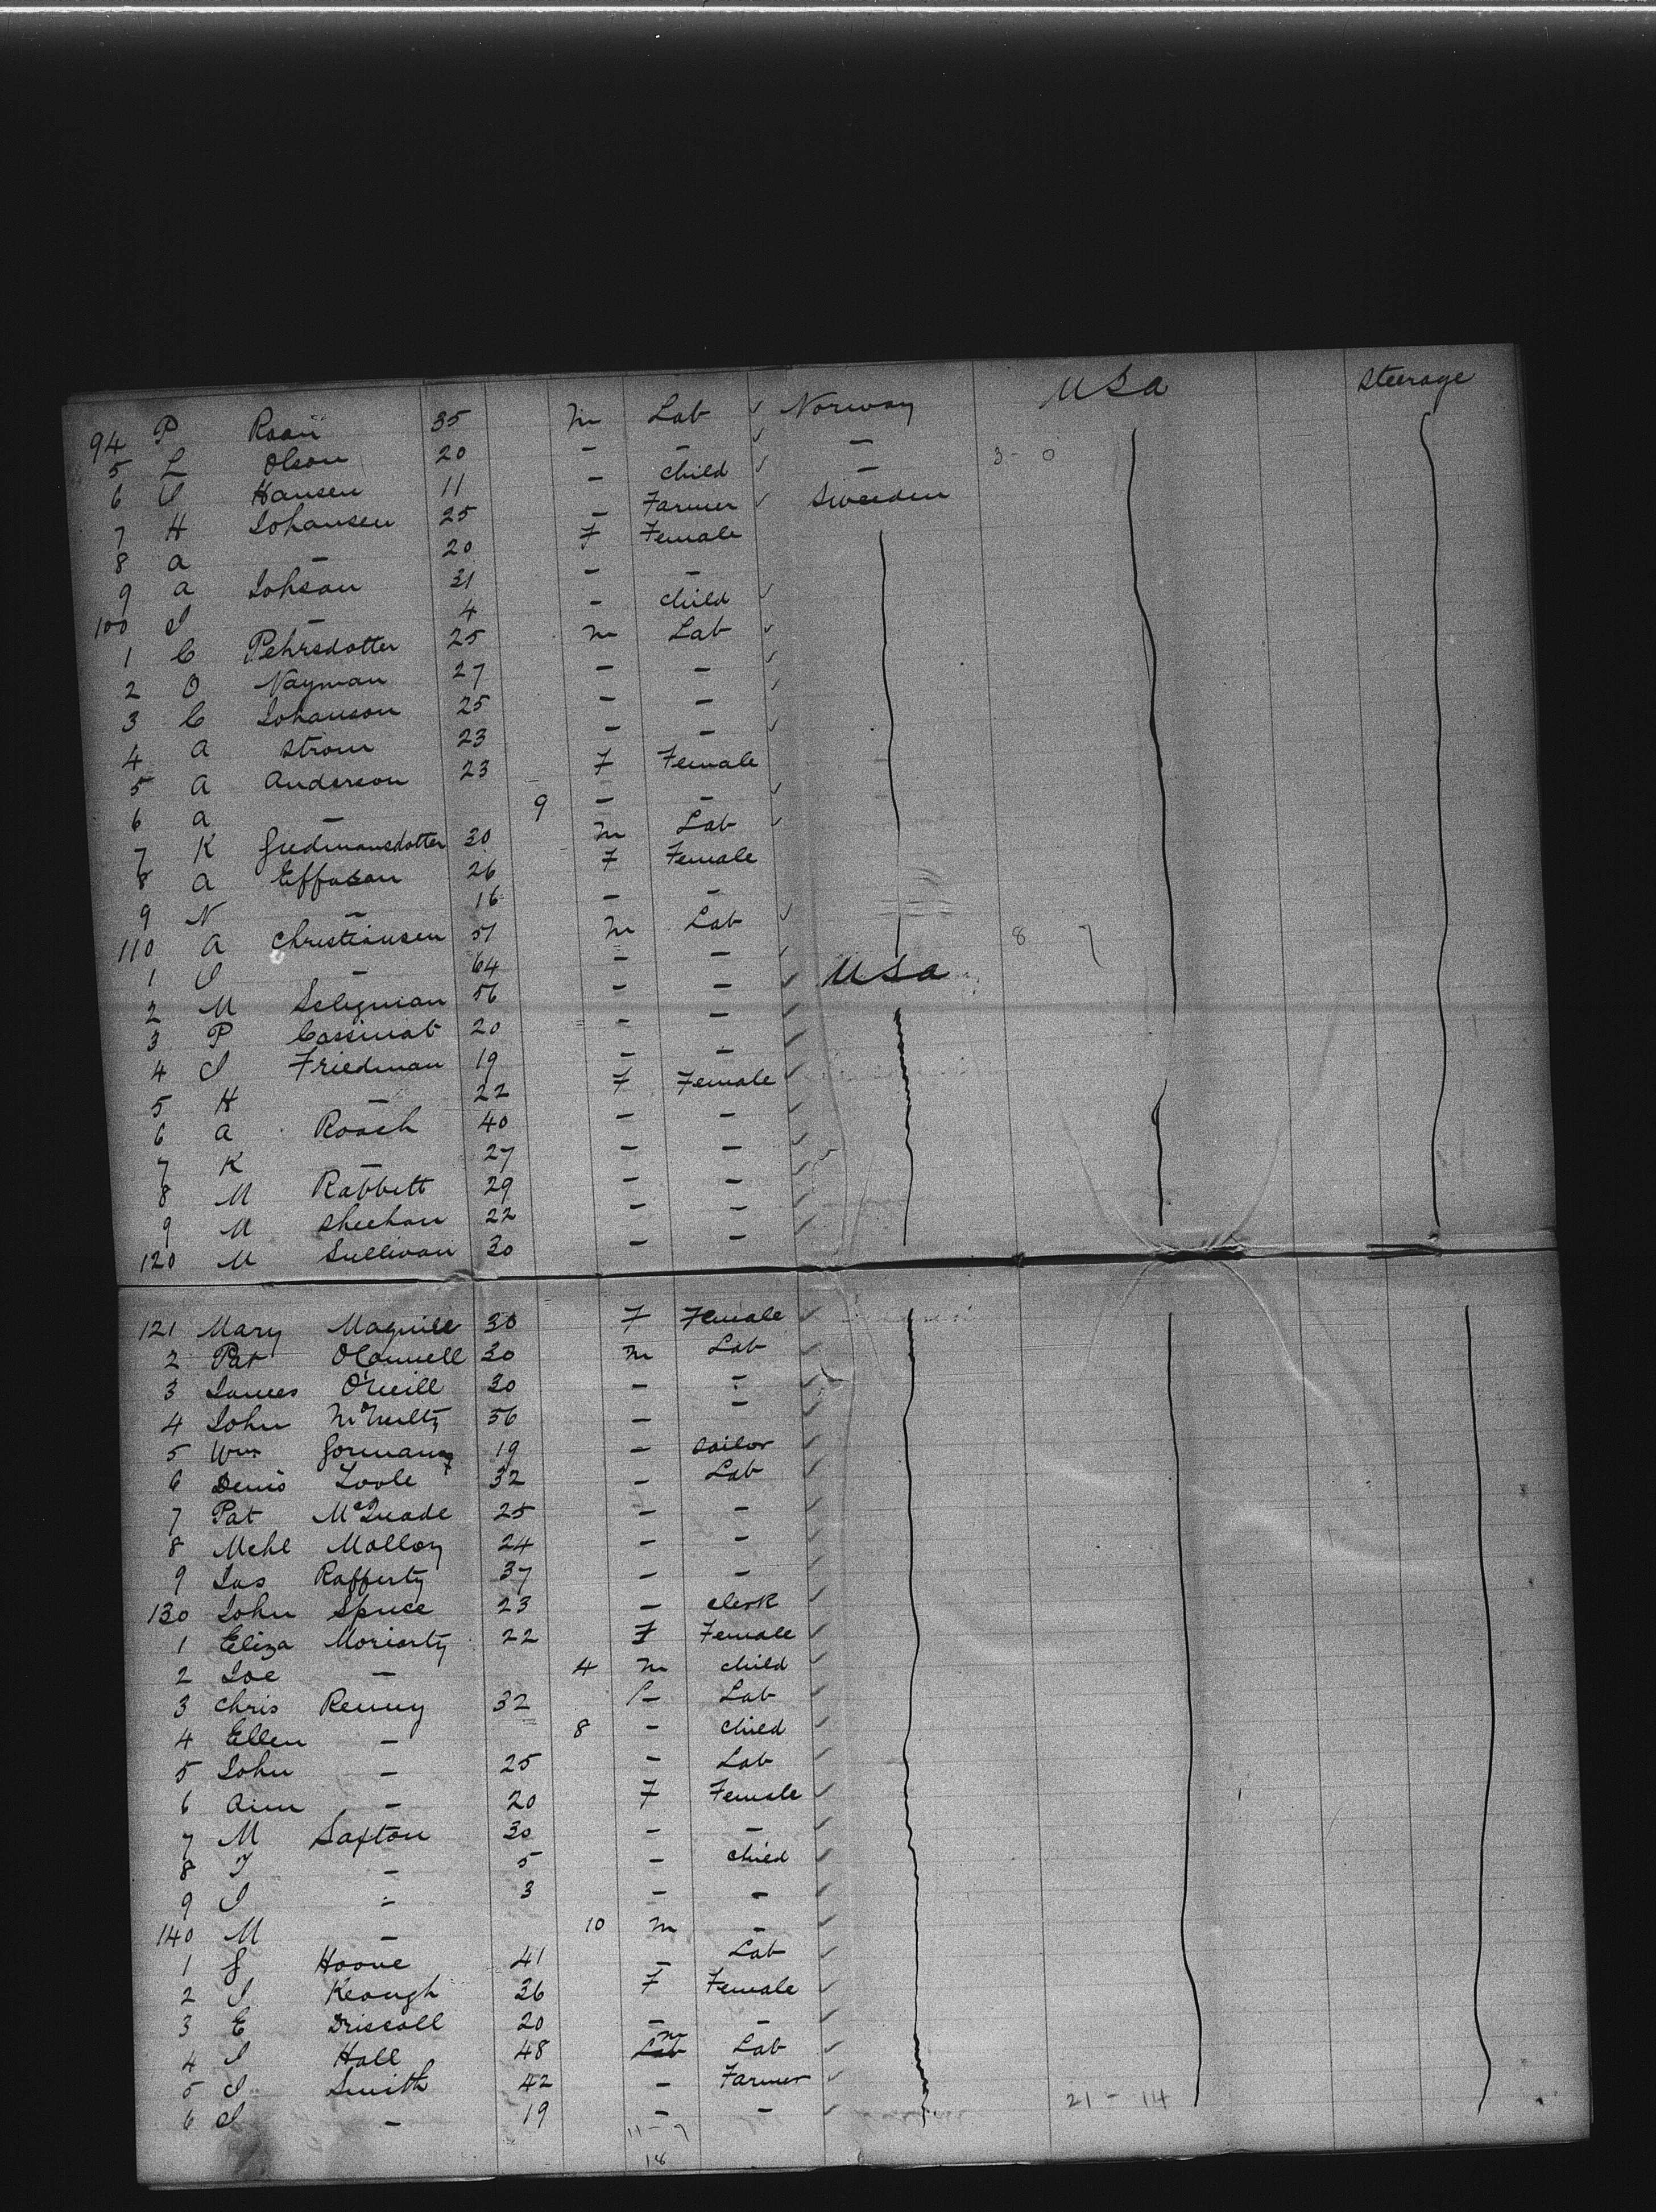 94 P Roan 35 m Lab ✓ Norway USA Steerage
5 L Olson 20 - - ✓ -
6 J Hansen 11 - child ✓ - 3 - 0
7 H Johansen 25 - Farmer ✓ Sweeden
8 A - 20 F Female
9 A Johson 31 - -
100 J - 4 - child ✓
1 C Pehrsdotter 25 m Lab ✓
2 O Nayman 27 - - ✓
3 C Johanson 25 - - ✓
4 A Strom 23 - - ✓
5 A Anderson 23 F Female
6 A - 9 - - ✓
7 K Gudmansdotter 30 m Lab ✓
8 A Effason 26 F Female
9 N - 16 - -
110 A Christiansen 51 m Lab ✓ 8 7
1 J - 64 - - ✓ USA
2 M Seligman 56 - - ✓
3 P Cassinat 20 - - ✓
4 J Friedman 19 - - ✓
5 H - 22 F Female ✓
6 A Roach 40 - - ✓
7 K - 27 - - ✓
8 M Rabbett 29 - - ✓
9 M Sheehan 22 - - ✓
120 M Sullivan 30 - - ✓
121 Mary Maguire 30 F Female ✓
2 Pat O'Connell 30 m Lab ✓
3 James O'Neill 30 - - ✓
4 John McNulty 56 - - ✓
5 Wm Gorman 19 - Sailor ✓
6 Denis Toole 32 - Lab ✓
7 Pat McQuade 25 - - ✓
8 Mchl Malloy 24 - - ✓
9 Jas Rafferty 37 - - ✓
130 John Spruce 23 - Clerk ✓
1 Eliza Moriarty 22 F Female ✓
2 Joe - 4 m child ✓
3 Chris Renny 32 - Lab ✓
4 Ellen - 8 - child ✓
5 John - 25 - Lab ✓
6 Ann - 20 F Female ✓
7 M Saxton 30 - - ✓
8 T - 5 - child ✓
9 J - 3 - - ✓
140 M - 10 m - ✓
1 G Hoove 41 - Lab ✓
2 J Keough 36 F Female ✓
3 E Driscoll 20 - - ✓
4 J Hall 48 m Lab ✓
5 J Smith 42 - Farmer ✓
6 J - 19 - - ✓ 21 - 14
11 - 7
18